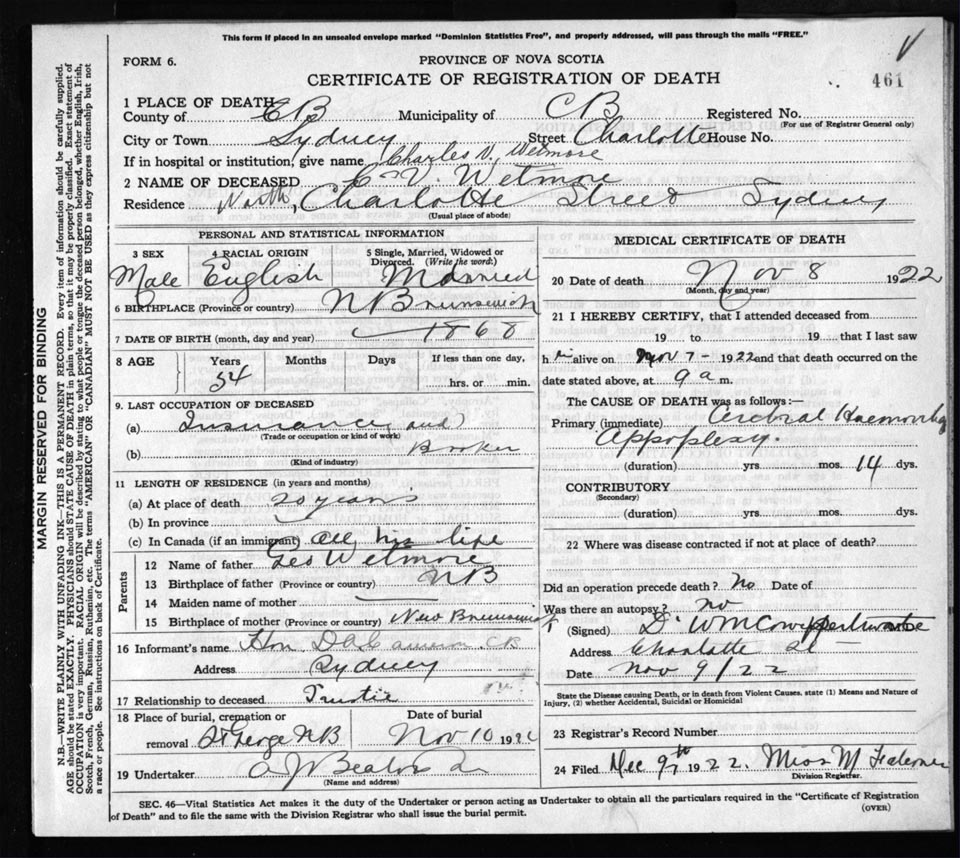 This form if placed in an unsealed envelope marked "Dominion Statistics Free", and properly addressed, will pass through the mails "FREE."
V
FORM 6.
PROVINCE OF NOVA SCOTIA
461
CERTIFICATE OF REGISTRATION OF DEATH
1 PLACE OF DEATH
County of CB Municipality of CB Registered No.
(For use of Registrar General only)
City or Town Sydney Street Charlotte House No.
If in hospital or institution, give name Charles V. Wetmore
2 NAME OF DECEASED C V. Wetmore
Residence North Charlotte Street Sydney
(Usual place of abode)
PERSONAL AND STATISTICAL INFORMATION
3 SEX 4 RACIAL ORIGIN 5 Single, Married, Widowed or Divorced. (Write the word)
Male English Married
6 BIRTHPLACE (Province or country) N Brunswick
7 DATE OF BIRTH (month, day and year) 1868
8 AGE Years Months Days If less than one day,
54 hrs. or min.
9. LAST OCCUPATION OF DECEASED
(a) Insurance and
(Trade or occupation or kind of work)
(b) Broker
(Kind of industry)
11 LENGTH OF RESIDENCE (in years and months)
(a) At place of death 20 years
(b) In province
(c) In Canada (if an immigrant) all his life
Parents
12 Name of father Geo Wetmore
13 Birthplace of father (Province or country) NB
14 Maiden name of mother
15 Birthplace of mother (Province or country) New Brunswick
16 Informant's name Hon. D A Cameron
Address Sydney
17 Relationship to deceased
18 Place of burial, cremation or Date of burial
removal St George NB Nov 10 1922
19 Undertaker A J Beaton
(Name and address)
MEDICAL CERTIFICATE OF DEATH
20 Date of death Nov 8 1922
(Month, day and year)
21 I HEREBY CERTIFY, that I attended deceased from
19 to 19 that I last saw
h i alive on Nov 7 - 1922 and that death occurred on the
date stated above, at 9 a m.
The CAUSE OF DEATH was as follows:—
Primary (immediate) Cerebral Haemorrhag
Appoplexy.
(duration) yrs. mos. 14 dys.
CONTRIBUTORY
(Secondary)
(duration) yrs. mos. dys.
22 Where was disease contracted if not at place of death?
Did an operation precede death? No Date of
Was there an autopsy? no
(Signed)
Address Charlotte St
Date Nov 9/22
State the Disease causing Death, or in death from Violent Causes, state (1) Means and Nature of
Injury, (2) whether Accidental, Suicidal or Homicidal
23 Registrar's Record Number
24 Filed Dec 9th 1922. Miss M
Division Registrar.
SEC. 46—Vital Statistics Act makes it the duty of the Undertaker or person acting as Undertaker to obtain all the particulars required in the "Certificate of Registration
of Death" and to file the same with the Division Registrar who shall issue the burial permit.
(OVER)
MARGIN RESERVED FOR BINDING
N.B.—WRITE PLAINLY WITH UNFADING INK—THIS IS A PERMANENT RECORD. Every item of information should be carefully supplied.
AGE should be stated EXACTLY. PHYSICIANS should STATE CAUSE OF DEATH in plain terms, so that it may be properly classified. Exact statement of
OCCUPATION is very important. RACIAL ORIGIN will be described by stating to what people or tongue the deceased person belonged, whether English, Irish,
Scotch, French, German, Russian, Ruthenian, etc. The terms "AMERICAN" OR "CANADIAN" MUST NOT BE USED as they express citizenship but not
a race or people. See instructions on back of Certificate.